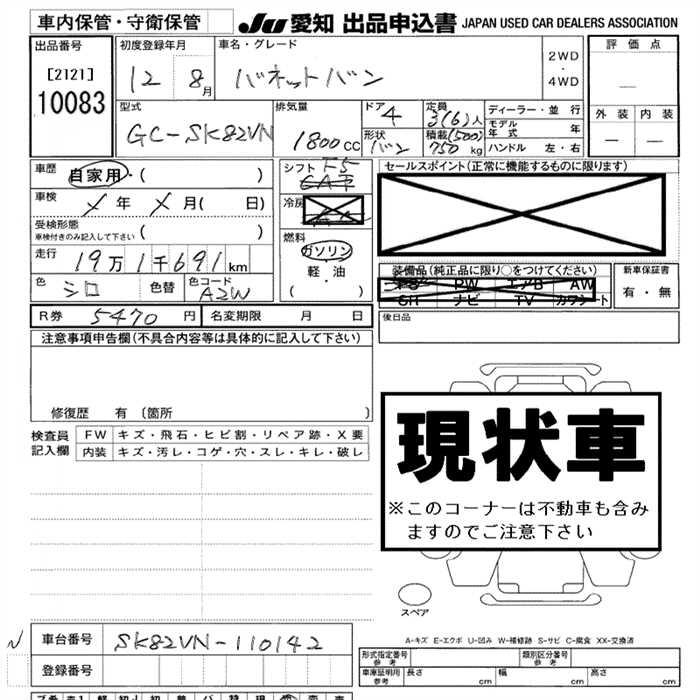 車内保管・守衛保管
JU 愛知 出品申込書 JAPAN USED CAR DEALERS ASSOCIATION
出品番号
[2121]
10083
初度登録年月
12 8月
車名・グレード
バネットバン
2WD
・
4WD
評価点
—
外装 内装
— —
型式
GC-SK82VN
排気量
1800cc
ドア 4
形状 バン
定員 3(6)人
積載 (500) 750 kg
ディーラー・並行
モデル年式 年
ハンドル 左・右
車歴 自家用・( )
車検 メ 年 メ 月( 日)
受検形態
車検付きのみ記入して下さい ( )
走行 19万1千691km
色 シロ
色替
色コード A2W
シフト F5
冷房
燃料
ガソリン
軽・油
( ・ )
セールスポイント(正常に機能するものに限ります)
装備品(純正品に限り○をつけてください)
PW エアB AW
SH ナビ TV カワシート
新車保証書
有・無
R券 5470円
名変期限 月 日
後日品
注意事項申告欄(不具合内容等は具体的に記入して下さい)
修復歴 有 〔箇所 〕
検査員記入欄
FW キズ・飛石・ヒビ割・リペア跡・X要
内装 キズ・汚レ・コゲ・穴・スレ・キレ・破レ
現状車
※このコーナーは不動車も含み
ますのでご注意下さい
スペア
A-キズ E-エクボ U-凹み W-補修跡 S-サビ C-腐食 XX-交換済
車台番号 SK82VN-110142
登録番号
形式指定番号 参考
類別区分番号 参考
車庫証明用 参考
長さ cm
幅 cm
高さ cm